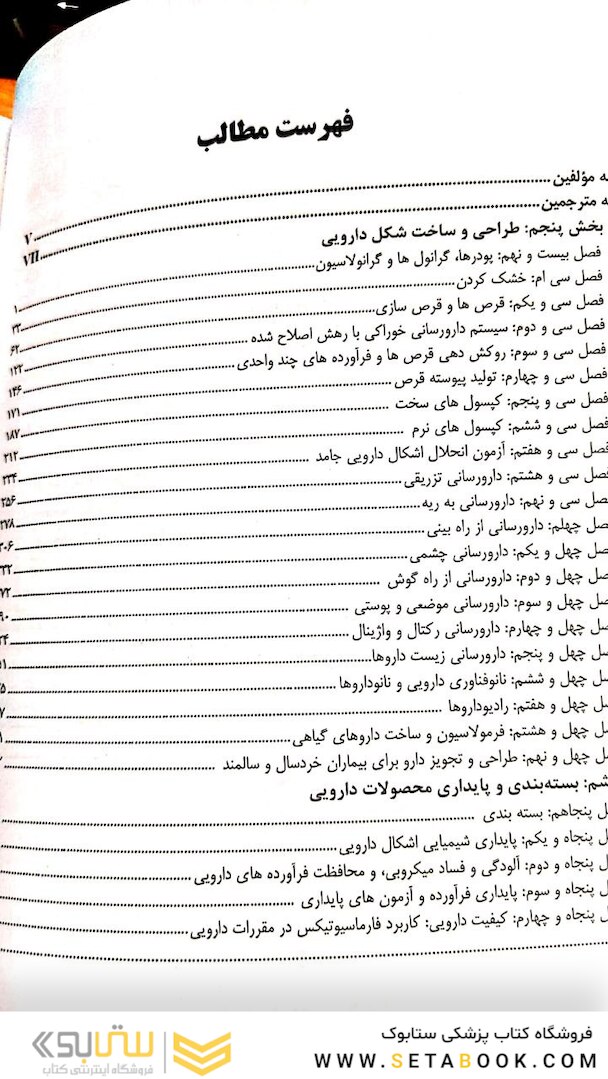 فهرست مطالب
مؤلفین
مترجمین
V
VII
بخش پنجم: طراحی و ساخت شکل دارویی
فصل بیست و نهم: پودرها، گرانول ها و گرانولاسیون
۱
فصل سی ام: خشک کردن
فصل سی و یکم: قرص ها و قرص سازی
۶۲
فصل سی و دوم: سیستم دارورسانی خوراکی با رهش اصلاح شده
۱۲۲
فصل سی و سوم: روکش دهی قرص ها و فرآورده های چند واحدی
۱۴۶
فصل سی و چهارم: تولید پیوسته قرص
۱۷۱
فصل سی و پنجم: کپسول های سخت
۱۸۷
فصل سی و ششم: کپسول های نرم
۲۱۲
فصل سی و هفتم: آزمون انحلال اشکال دارویی جامد
۲۳۴
فصل سی و هشتم: دارورسانی تزریقی
۲۵۶
سی و نهم: دارورسانی به ریه
چهلم: دارورسانی از راه بینی
چهل و یکم: دارورسانی چشمی
چهل و دوم: دارورسانی از راه گوش
چهل و سوم: دارورسانی موضعی و پوستی
چهل و چهارم: دارورسانی رکتال و واژینال
چهل و پنجم: دارورسانی زیست داروها
چهل و ششم: نانوفناوری دارویی و نانوداروها
چهل و هفتم: رادیوداروها
چهل و هشتم: فرمولاسیون و ساخت داروهای گیاهی
چهل و نهم: طراحی و تجویز دارو برای بیماران خردسال و سالمند
بسته‌بندی و پایداری محصولات دارویی
پنجاهم: بسته بندی
پنجاه و یکم: پایداری شیمیایی اشکال دارویی
پنجاه و دوم: آلودگی و فساد میکروبی، و محافظت فرآورده های دارویی
پنجاه و سوم: پایداری فرآورده و آزمون های پایداری
پنجاه و چهارم: کیفیت دارویی: کاربرد فارماسیوتیکس در مقررات دارویی
فروشگاه کتاب پزشکی ستابوک
WWW.SETABOOK.COM
ستابوک
فروشگاه اینترنتی کتاب